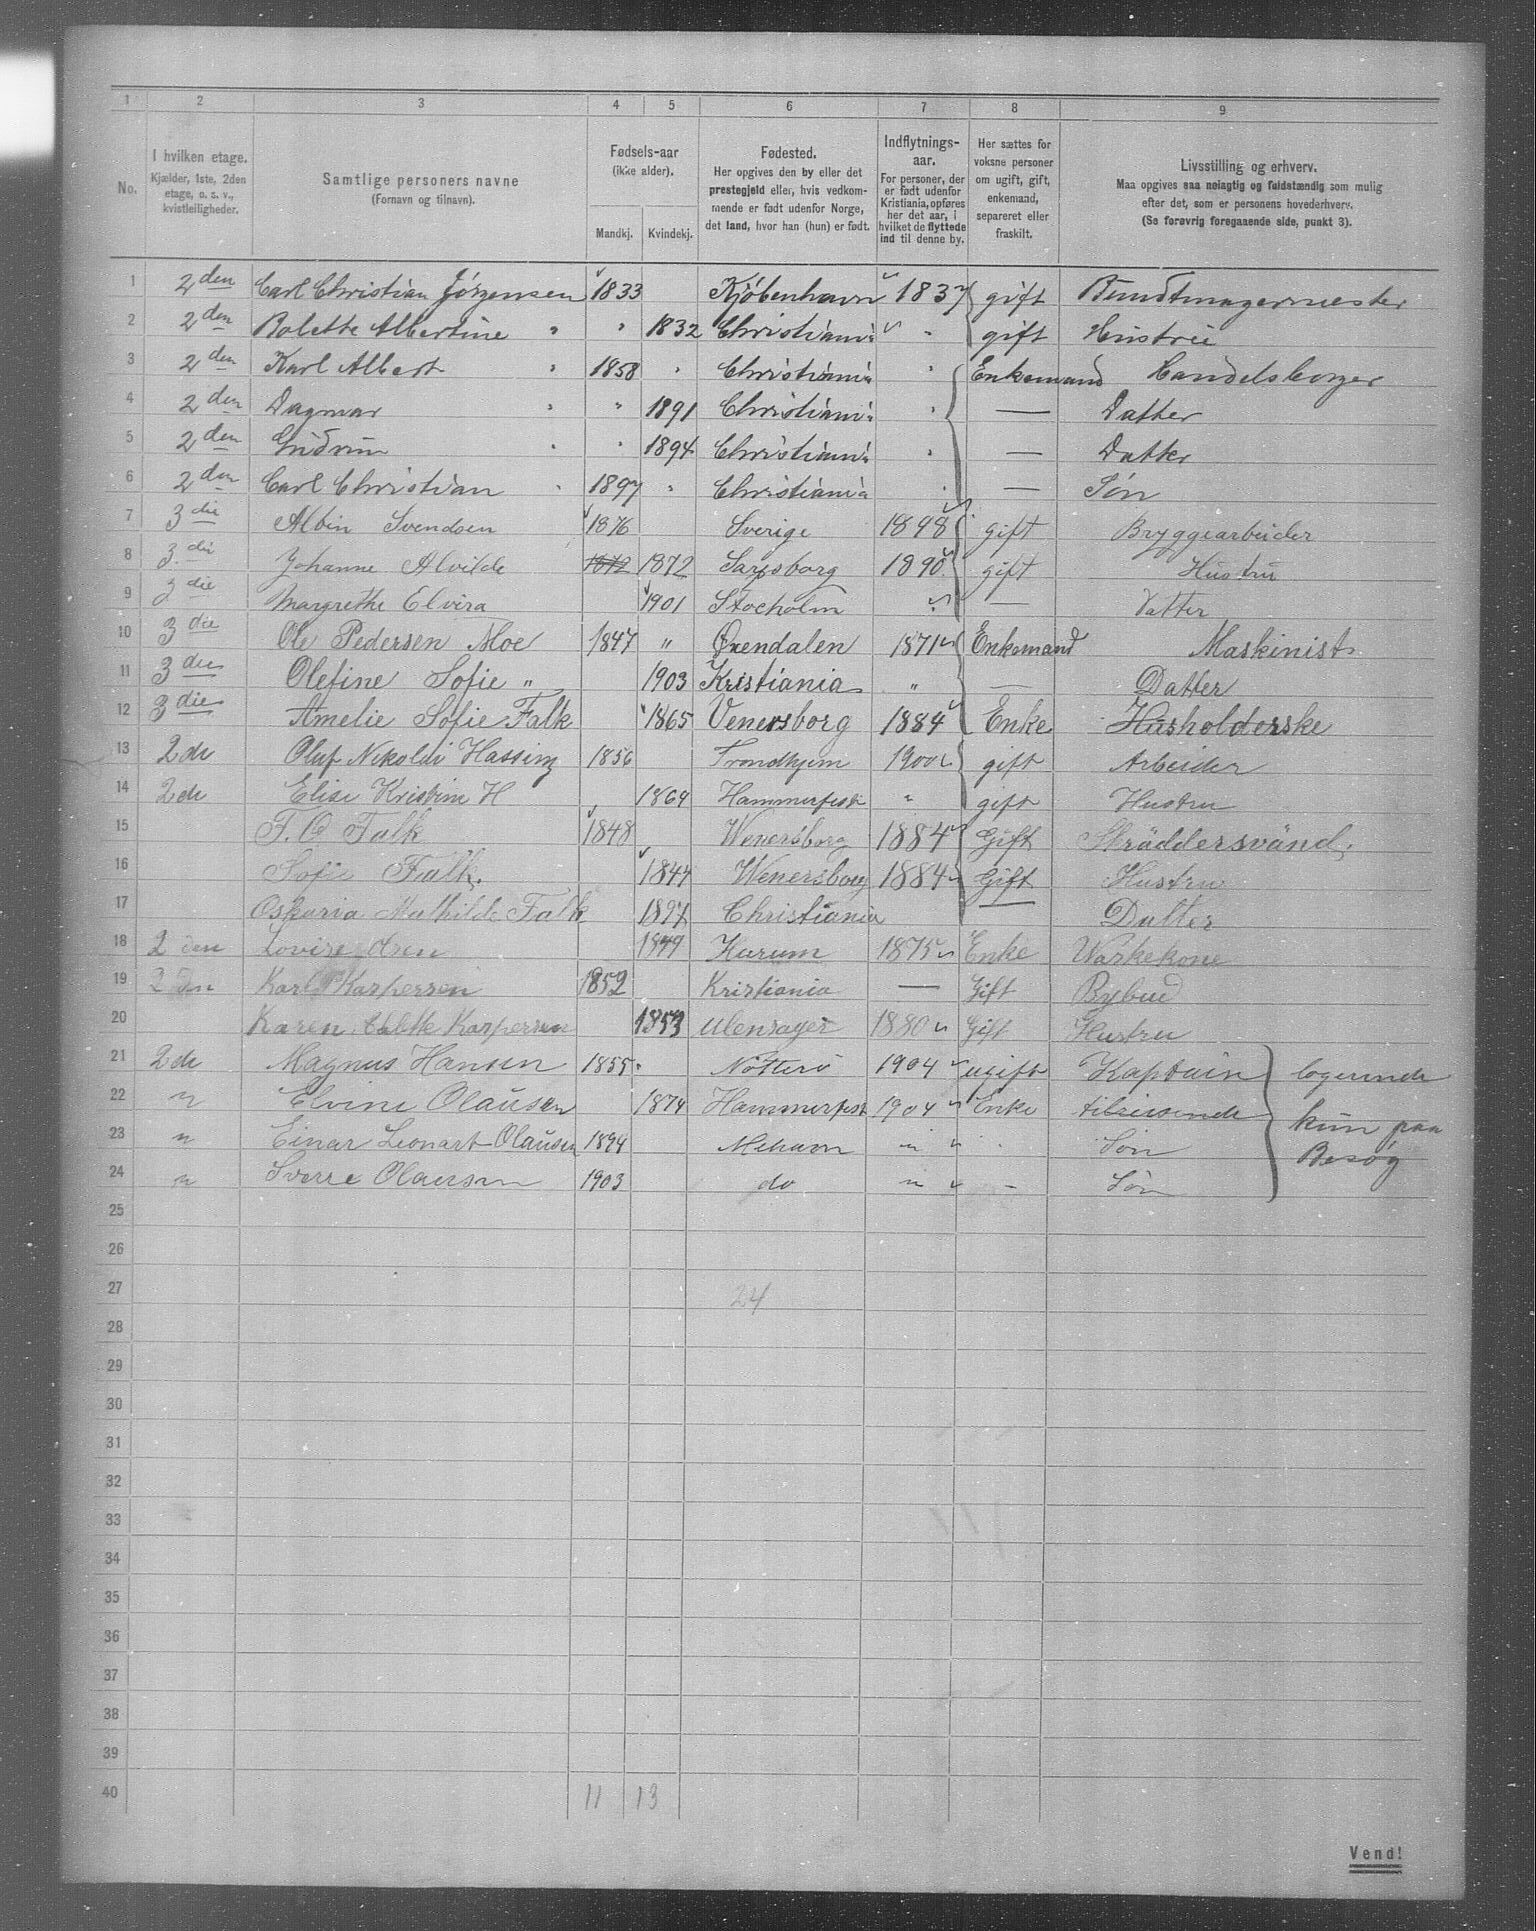 1 2 3 4 5 6 7 8 9
No.
I hvilken etage.
Kjælder, 1ste, 2den
etage, o. s. v.,
kvistleiligheder.
Samtlige personers navne
(Fornavn og tilnavn).
Fødsels-aar
(ikke alder).
Mandkj. Kvindekj.
Fødested.
Her opgives den by eller det
prestegjeld eller, hvis vedkom-
mende er født udenfor Norge,
det land, hvor han (hun) er født.
Indflytnings-
aar.
For personer, der
er født udenfor
Kristiania, opføres
her det aar, i
hvilket de flyttede
ind til denne by.
Her sættes for
voksne personer
om ugift, gift,
enkemand,
separeret eller
fraskilt.
Livsstilling og erhverv.
Maa opgives saa nøiagtig og fuldstændig som mulig
efter det, som er personens hovederhverv.
(Se forøvrig foregaaende side, punkt 3).
1 2den Carl Christian Jørgensen 1833 Kjøbenhavn 1837 gift Bundtmagermester
2 2den Bolette Albertine " " 1832 Christiania " gift Hustru
3 2den Karl Albert " 1858 " Christiania " Enkemand Handelsborger
4 2den Dagmar " " 1891 Christiania " — Datter
5 2den Gudrun " " 1894 Christiania " — Datter
6 2den Carl Christian " 1897 " Christiania " — Søn
7 3die Albin Svendsen 1876 Sverige 1898 gift Bryggearbeider
8 3die Johanne Alvilde 1872 1872 Sarpsborg 1890 gift Hustru
9 3die Margrethe Elvira 1901 Stocholm " — Datter
10 3die Ole Pedersen Moe 1847 " Øxendalen 1871 Enkemand Maskinist
11 3die Olefine Sofie " 1903 Kristiania " — Datter
12 3die Amelie Sofie Falk 1865 Venersborg 1884 Enke Husholderske
13 2de Oluf Nikolai Hassing 1856 Trondhjem 1900 gift Arbeider
14 2de Elise Kristine H 1869 Hammerfest " gift Hustru
15 F. O Falk 1848 Wenersborg 1884 Gift Skräddersvänd.
16 Sofie Falk. 1844 Wenersborg 1884 Gift Hustru
17 Oskaria Mathilde Falk 1897 Christiania — Datter
18 2den Lovise 1849 Hurum 1875 Enke Waskekone
19 2den Karl Kaspersen 1852 Kristiania — Gift Bybud
20 Karen Kaspersen 1853 Ulensager 1880 Gift Hustru
21 2de Magnus Hansen 1855 Nøtterø 1904 ugift Kaptain logerende
22 " Elvine Olausen 1874 Hammerfest 1904 Enke tilreisende kun paa
23 " Einar Leonart Olausen 1894 Mehavn " " Søn Besøg
24 " Sverre Olausen 1903 do " - Søn
25
26
27 24
28
29
30
31
32
33
34
35
36
37
38
39
40 11 13
Vend!